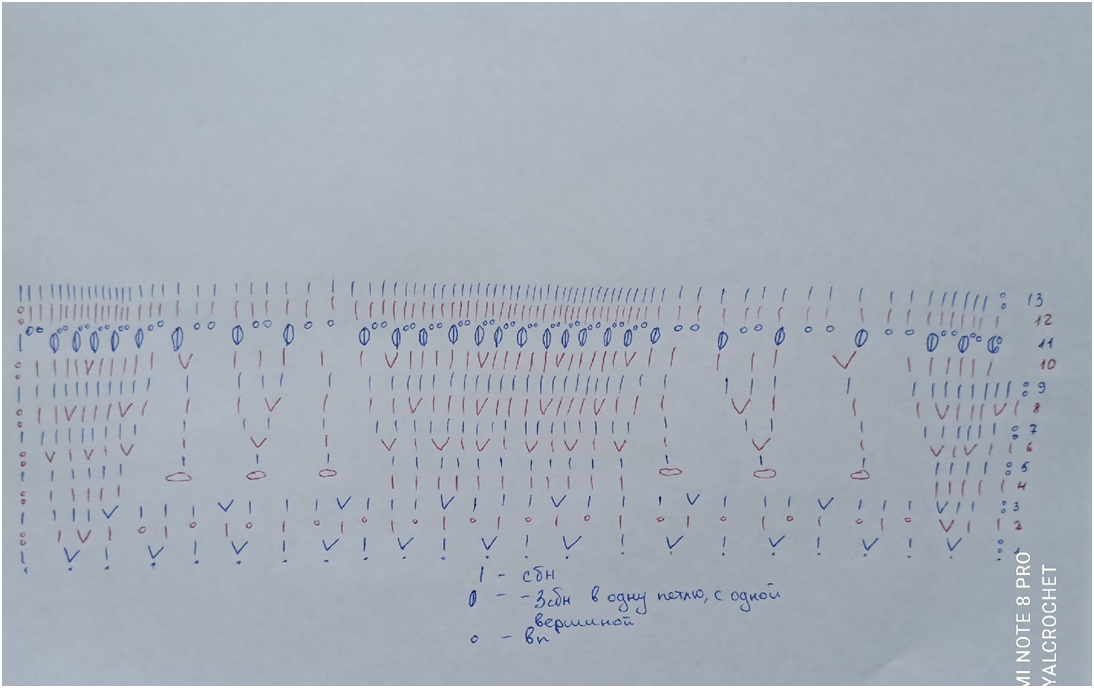 13
12
11
10
9
8
7
6
5
4
3
2
1
| - сбн
0 - -3сбн в одну петлю, с одной
вершиной
о - вп
MI NOTE 8 PRO
YALCROCHET